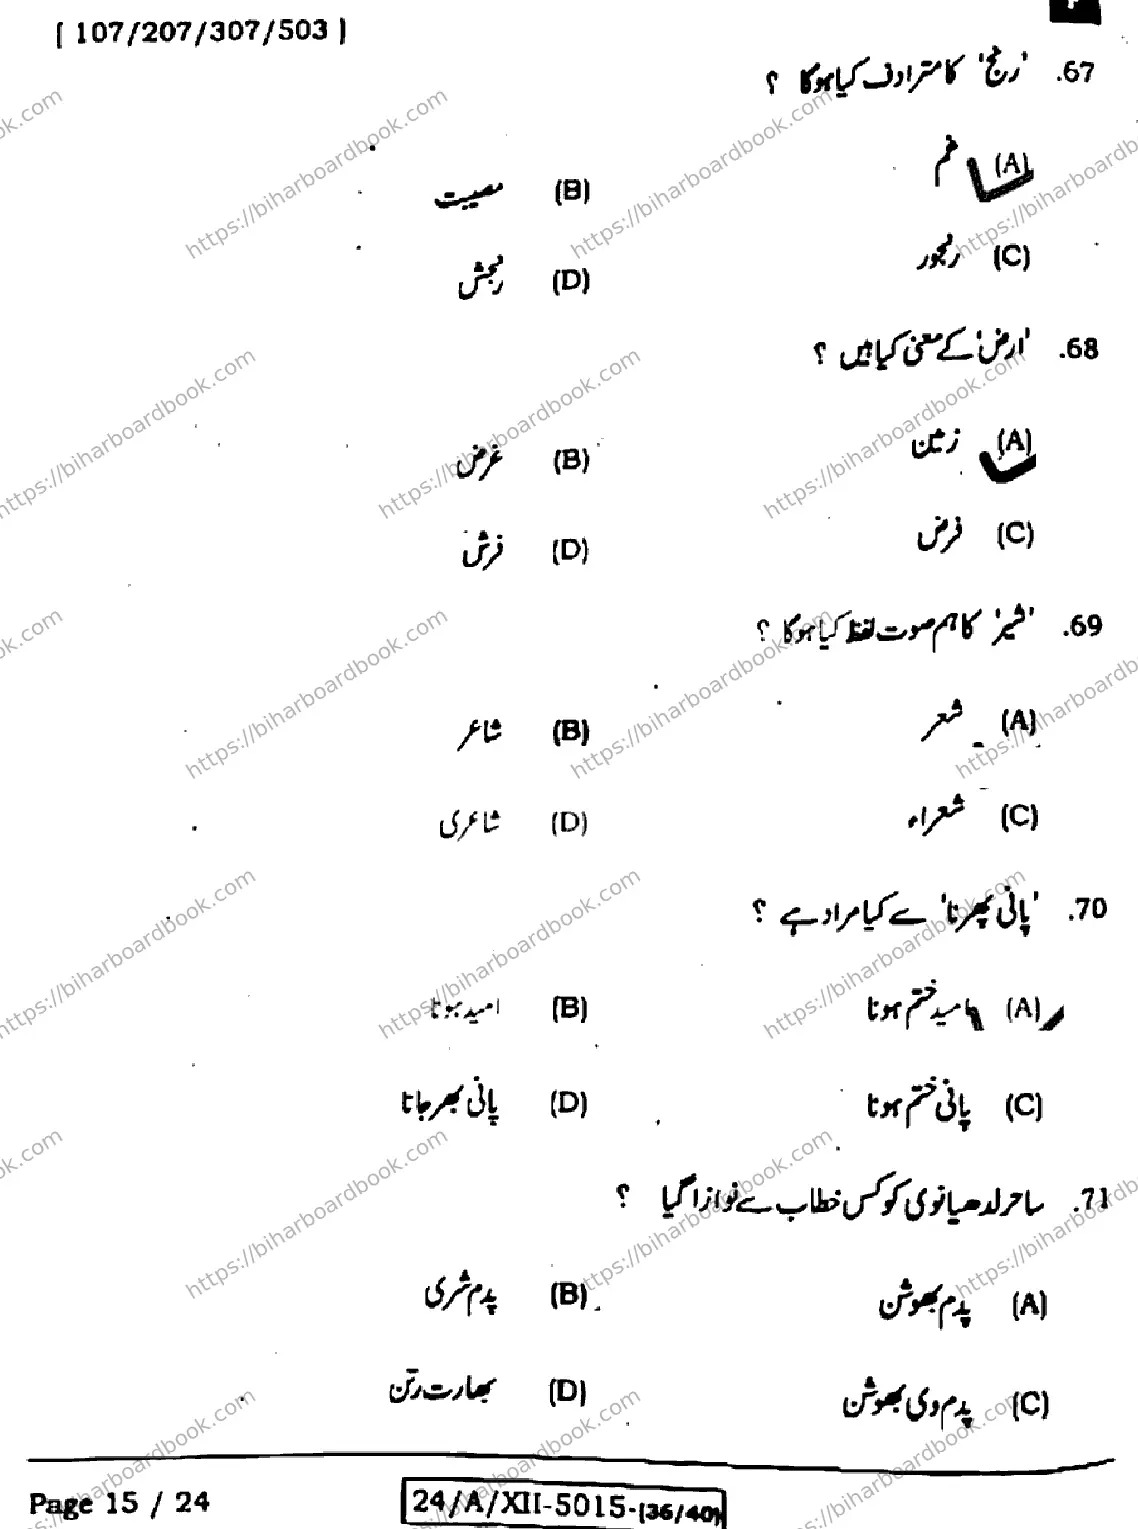 [ 107/207/307/503 ]
67. 'رنج' کا مترادف کیا ہوگا ؟
(A) غم (B) مصیبت
(C) رنجور (D) رنجش
68. 'ارض' کے معنی کیا ہیں ؟
(A) زمین (B) غرض
(C) فرض (D) فرش
69. 'شیر' کا ہم صوت لفظ کیا ہوگا ؟
(A) شعر (B) شاعر
(C) شعراء (D) شاعری
70. 'پانی پھرنا' سے کیا مراد ہے ؟
(A) امید ختم ہونا (B) امید ہونا
(C) پانی ختم ہونا (D) پانی بھر جانا
71. ساحر لدھیانوی کو کس خطاب سے نوازا گیا ؟
(A) پدم بھوشن (B) پدم شری
(C) پدم وی بھوشن (D) بھارت رتن
Page 15 / 24 24/A/XII-5015-(36/40)
https://biharboardbook.com